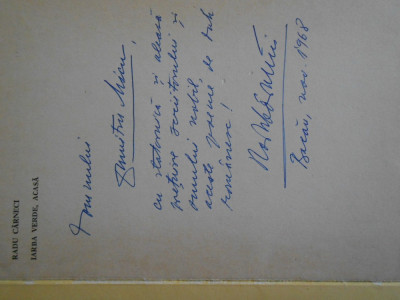 RADU CÂRNECI
IARBA VERDE, ACASĂ
Domnului
Dumitru Micu,
cu statornică și aleasă
prețuire scriitorului și
omului nobil,
aceste poeme de duh
românesc!
Radu Cârneci
Bacău, nov. 1968